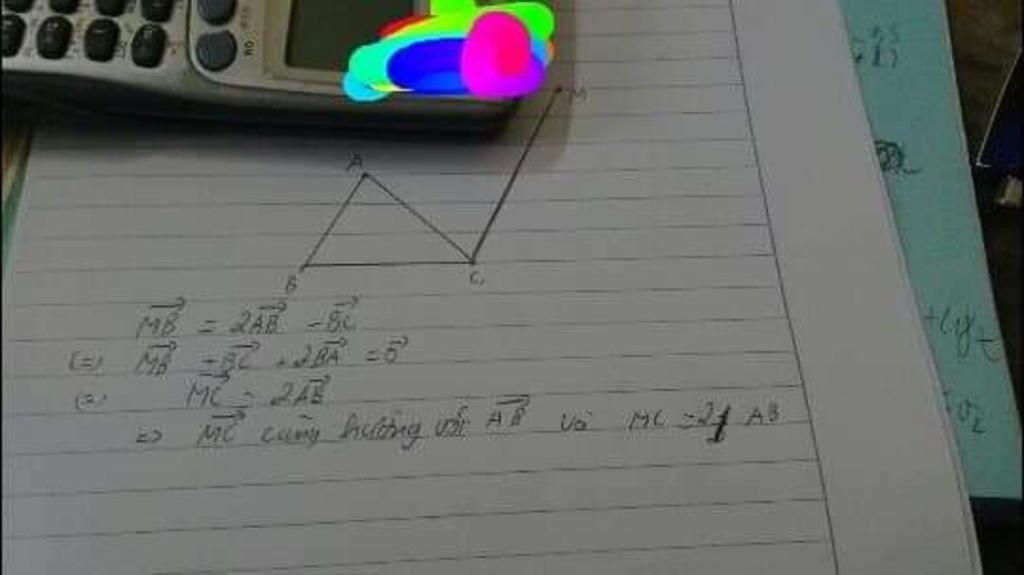 M
A
B
C
$\overrightarrow{MB} = 2\overrightarrow{AB} - \overrightarrow{BC}$
(=) $\overrightarrow{MB} - \overrightarrow{BC} + 2\overrightarrow{BA} = \vec{0}$
(=) $\overrightarrow{MC} = 2\overrightarrow{AB}$
=> $\overrightarrow{MC}$ cùng hướng với $\overrightarrow{AB}$ và MC = 2 AB
ON